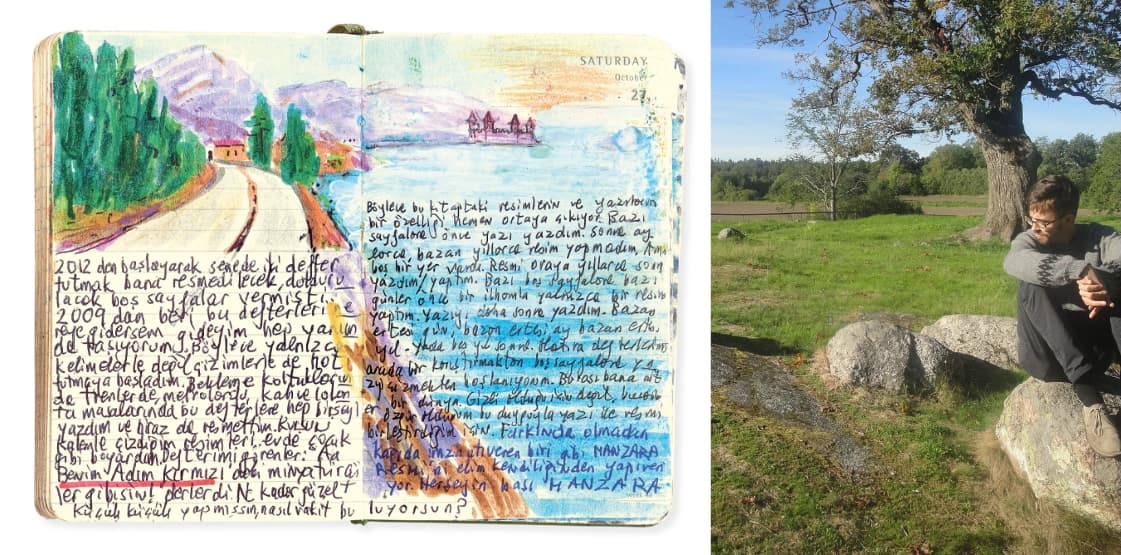 2012 den başlayarak senede iki defter
tutmak bana resmedilecek, doldur
lacak boş sayfalar vermişti.
2009 dan beri bu defterleri ne
reye gidersem gideyim hep yanım
da taşıyorum. Böylece yalnızca
kelimelerle değil çizimlerle de not
tutmaya başladım. Bekleme koltuklarında
da trenlerde, metrolarda, kahve lokan
ta masalarında bu defterlere hep birşeyler
yazdım ve biraz da resmettim. Kurşun
kalemle çizdiğim resimleri, evde çocuk
gibi boyardım. Defterimi görenler: Aa
Benim Adım Kırmızı daki minyatürcü
ler gibisin! derlerdi. Ne kadar güzel!
küçük küçük yapmışsın, nasıl vakit bu
SATURDAY
October
27
Böylece bu kitaptaki resimlerin ve yazıların
bir özelliği hemen ortaya çıkıyor. Bazı
sayfalara önce yazı yazdım. Sonra ay
larca, bazan yıllarca resim yapmadım. Ama
boş bir yer vardı. Resmi oraya yıllarca sonra
yazdım/yaptım. Bazı boş sayfalara bazı
günler önce bir ilhamla yalnızca bir resim
yaptım. Yazıyı, daha sonra yazdım. Bazan
ertesi gün, bazan ertesi ay bazan ertesi
yıl. Yada beş yıl sonra. Hatıra defterlerini
arada bir karıştırmaktan boş sayfalara ya
zıp çizmekten hoşlanıyorum. Burası bana ait
bir dünya. Gizli olduğu için değil, burada
özgür olduğum bu duyguyla yazı ile resmi
birleştirdiğim için. Farkında olmadan
kapıda imza atıveren biri gibi MANZARA
Resmi ni elim kendiliğinden yapıver
yor. Herşeyin başı MANZARA
luyorsun?